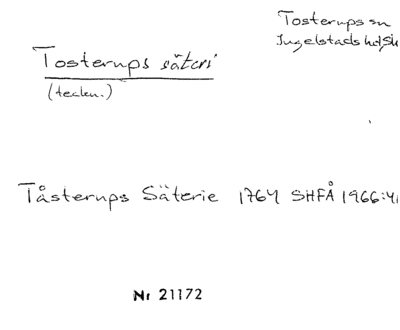 Tosterups sn
Ingelstads hd, Sk
Tosterups säteri
(teckn.)
Tåsterups Säterie 1764 SHFÅ 1966:4
Nr 21172